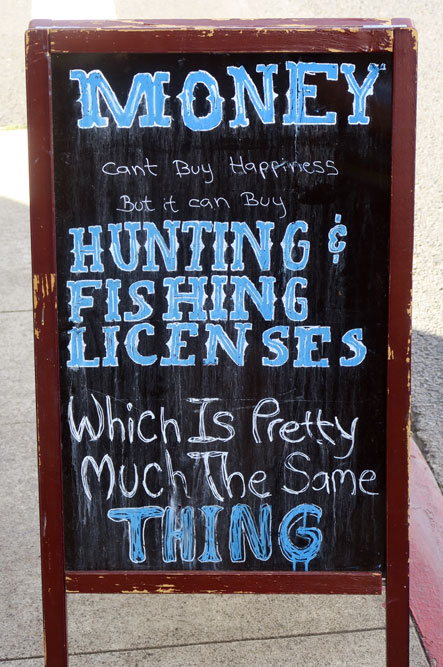 MONEY
Cant Buy Happiness
But it can Buy
HUNTING &
FISHING
LICENSES
Which Is Pretty
Much The Same
THING